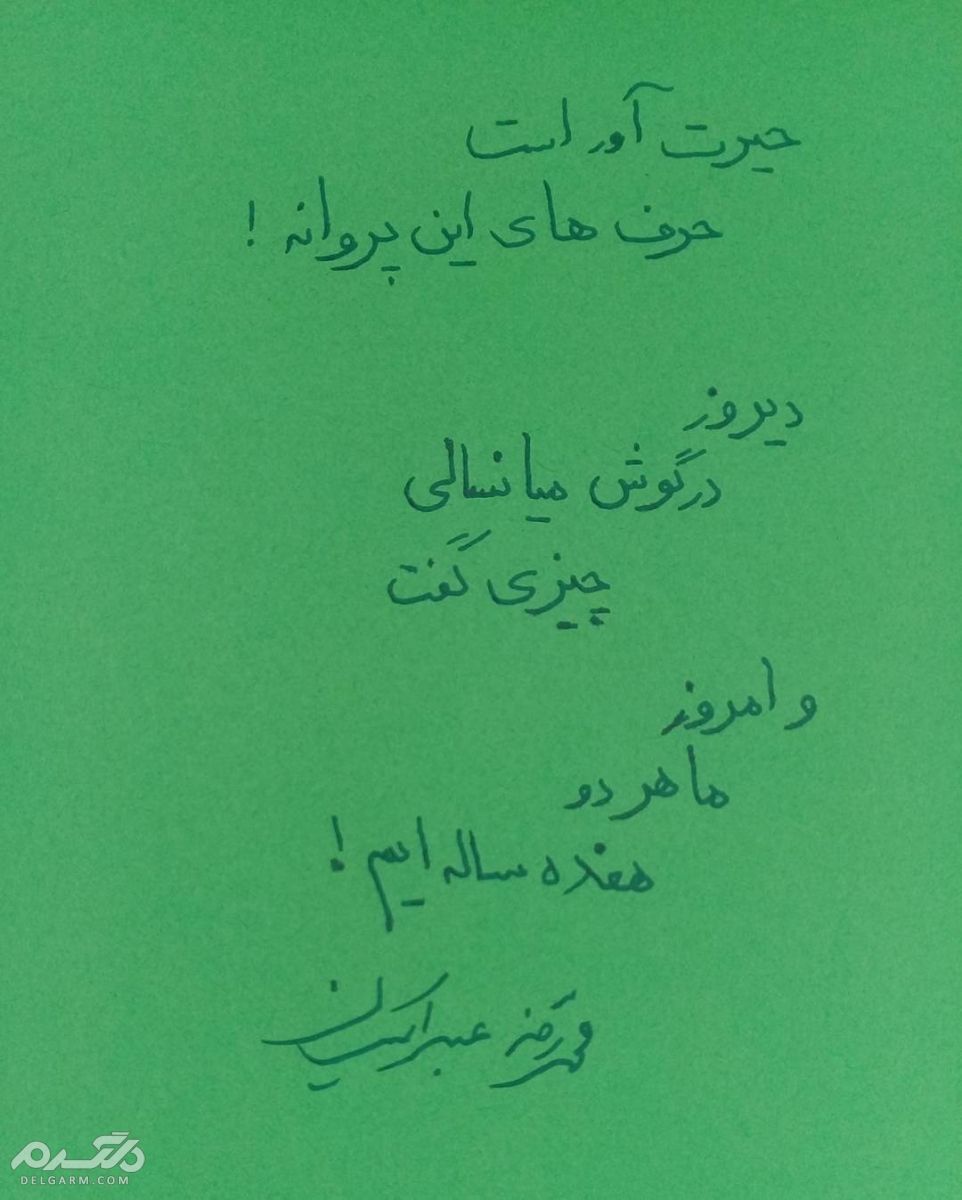 حیرت آور است
حرف های این پروانه !
دیروز
در گوش میانسالی
چیزی گفت
و امروز
ما هر دو
هفده ساله ایم !
محمدرضا عبدالملکیان
دلگرم
DELGARM.COM